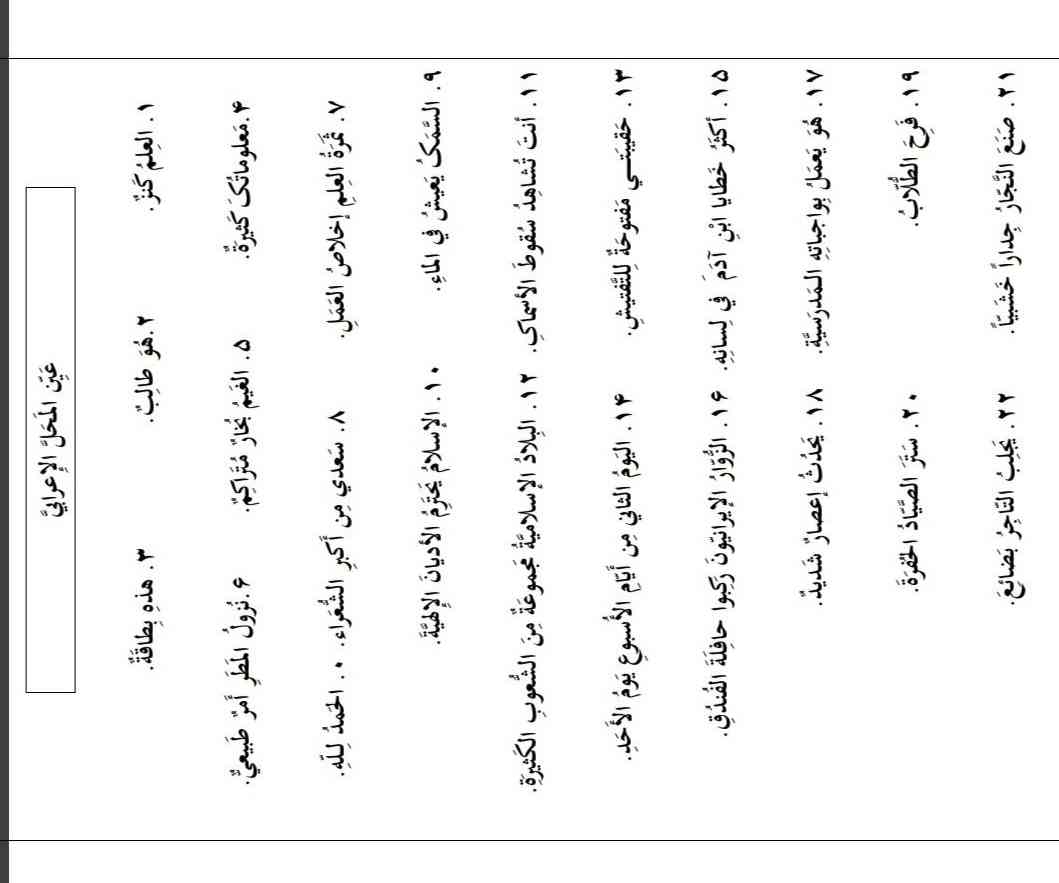 عَيِّن المَحَلَّ الإعرابيَّ
١. العِلمُ كَنزٌ. ٢.هُوَ طالِبٌ. ٣. هذهِ بِطاقَةٌ.
۴.مَعلوماتُکَ کَثیرَةٌ. ۵. الغَيمُ بُخارٌ مُتَراكِمٌ. ۶.نُزولُ المَطَرِ أمرٌ طَبيعيٌّ.
٧. ثَمَرَةُ العِلمِ إخلاصُ العَمَلِ. ٨. سَعدي مِن أكبَرِ الشُّعَراء. ٠. الحَمدُ لِلّهِ.
٩. السَّمَکُ يَعيشُ في الماءِ. ١٠. الإسلامُ يَحتَرِمُ الأديانَ الإلهيَّةَ.
١١. أنتَ تُشاهِدُ سُقوطَ الأسماكِ. ١٢. البِلادُ الإسلاميَّةُ مَجموعَةٌ مِنَ الشُّعوبِ الكَثيرَةِ.
١٣. حَقيبَتـي مَفتوحَةٌ لِلتَّفتيشِ. ١۴. اليَومُ الثاني مِن أيّامِ الأُسبوعِ يَومُ الأحَدِ.
١۵. أكثَرُ خَطايا ابْنِ آدَمَ في لِسانِهِ. ١۶. الزُّوّارُ الإيرانيّونَ رَكِبوا حافِلَةَ الفُندُقِ.
١٧. هُوَ يَعمَلُ بِواجِباتِهِ الـمَدرَسيَّةِ. ١٨. يَحدُثُ إعصارٌ شَديدٌ.
١٩. فَرِحَ الطُّلّابُ. ٢٠. سَتَرَ الصَّيّادُ الحُفرَةَ.
٢١. صَنَعَ النَّجّارُ جِداراً خَشَبيّاً. ٢٢. يَجلِبُ التّاجِرُ بَضائِعَ.